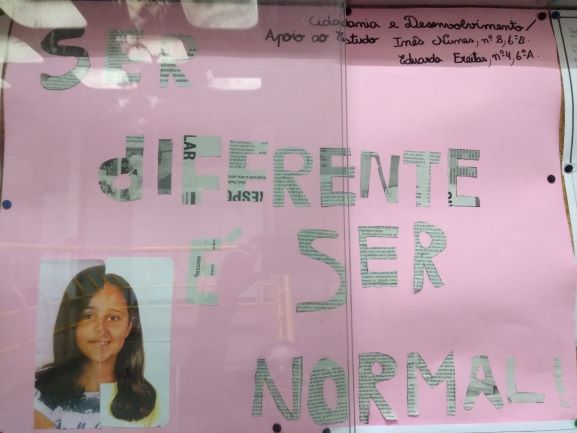 Cidadania e Desenvolvimento/
Apoio ao Estudo Inês Nunes, nº 8, 6ºB.
Eduarda Freitas, nº4, 6ºA.
SER
dIFERENTE
É SER
NORMAL!